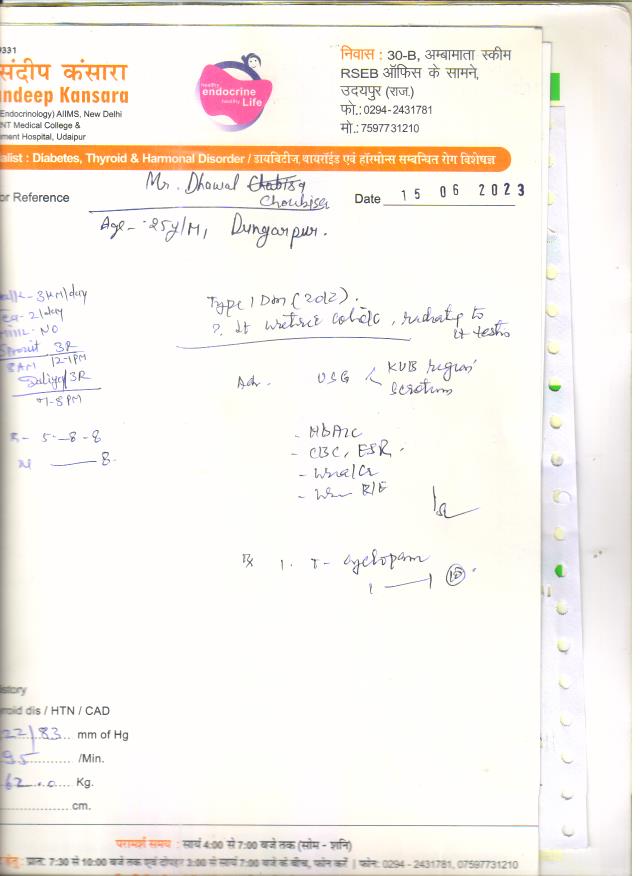 9331
संदीप कंसारा
ndeep Kansara
Endocrinology) AIIMS, New Delhi
NT Medical College &
ment Hospital, Udaipur
healthy
endocrine
healthy Life
निवास : 30-B, अम्बामाता स्कीम
RSEB ऑफिस के सामने,
उदयपुर (राज.)
फो.:0294-2431781
मो.:7597731210
alist : Diabetes, Thyroid & Harmonal Disorder / डायबिटीज, थायरॉईड एवं हॉरमोन्स सम्बन्धित रोग विशेषज्ञ
or Reference
Mr. Dhawal
Choubisa
Date 15 06 2023
Age - 25y/M, Dungarpur.
alk - 3KM/day
Tea - 2/day
Milk - NO
3R
8AM 12-1PM
Daliya/3R
7-8PM
R - 5 - 8 - 8
N - 8
Type 1 DM (2012).
? lt ureteric colic, radiating to
lt testis
Adv. USG < KUB region
scrotum
- HbA1c
- CBC, ESR
- Urea/Cr
- Urine R/E
Rx 1. T- cyclopam
1 — 1 (10)
istory
yroid dis / HTN / CAD
22/83 mm of Hg
95 /Min.
62.0 Kg.
cm.
परामर्श समय : सायं 4:00 से 7:00 बजे तक (सोम - शनि)
हेतु : प्रातः 7:30 से 10:00 बजे तक एवं दोपहर 3:00 से सायं 7:00 बजे के बीच, फोन करें | फोन: 0294 - 2431781, 07597731210